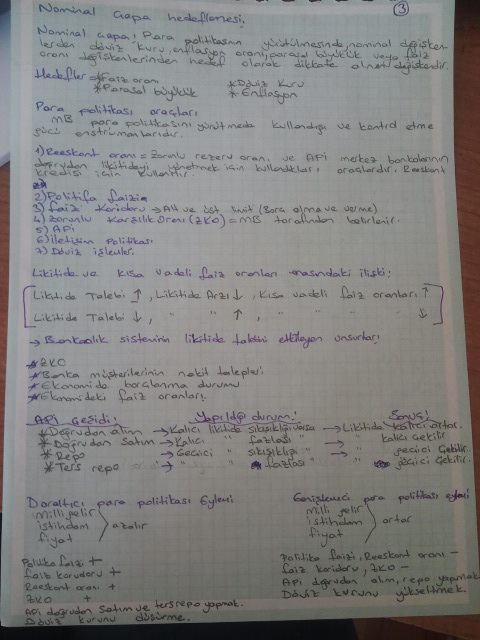 Nominal Çapa hedeflemesi;
3
Nominal Çapa; Para politikasının yürütülmesinde, nominal değişken-
lerden döviz kuru, enflasyon oranı, parasal büyüklük veya faiz
oranı değişkenlerinden hedef olarak dikkate alınan değişkendir.
Hedefler * Faiz oranı * Döviz Kuru
* Parasal büyüklük * Enflasyon
Para politikası araçları
MB para politikasını yürütmede kullandığı ve kontrol etme
gücü enstrümanlarıdır.
1) Reeskont oranı = Zorunlu rezerv oranı ve APi merkez bankalarının
doğrudan likiditeyi yönetmek için kullandıkları araçlardır. Reeskont
kredisi için kullanılır.
2) Politika faizi
3) Faiz Koridoru → Alt ve üst limit (Borç alma ve verme)
4) Zorunlu Karşılık Oranı (ZKO) = MB tarafından belirlenir.
5) APi
6) iletişim Politikası
7) Döviz işlemleri
Likitide ve kısa vadeli faiz oranları arasındaki ilişki;
Likitide Talebi ↑, Likitide Arzı ↓, Kısa vadeli faiz oranları ↑
Likitide Talebi ↓, " " ↑, " " " " ↓
→ Bankacılık sisteminin likitide talebini etkileyen unsurlar;
* ZKO
* Banka müşterilerinin nakit talepleri
* Ekonomide borçlanma durumu
* Ekonomideki faiz oranları.
APi Çeşidi; Yapıldığı durum; Sonuç;
* Doğrudan alım → Kalıcı likitide sıkışıklığı varsa → Likitide kalıcı artar.
* Doğrudan satım → Kalıcı " fazlası " → " kalıcı Çekilir
* Repo → Geçici " sıkışıklığı " → " geçici Çekilir.
* Ters repo → " " fazlası " → " geçici Çekilir.
Daraltıcı para politikası eylemi
Milli gelir
istihdam azalır
fiyat
Politika faizi +
faiz koridoru +
Reeskont oranı +
ZKO +
APi doğrudan satım ve ters repo yapmak.
Döviz kurunu düşürme.
Genişlemeci para politikası eylemi
Milli gelir
istihdam artar
fiyat
Politika faizi, Reeskont oranı -
faiz koridoru, ZKO -
APi doğrudan alım, repo yapmak
Döviz kurunu yükseltmek.